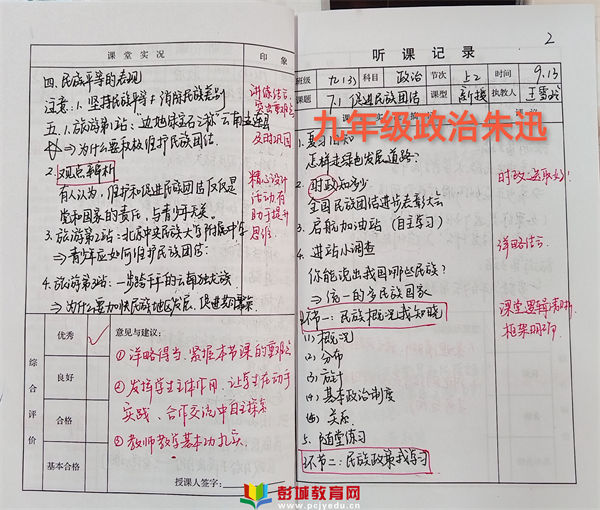 课堂实况 印象
四.民族平等的表现
注意:1.坚持民族平等≠消除民族差别
五.1.旅游第1站:
⇒为什么要积极维护民族团结
2.观点辨析
有人认为,维护和促进民族团结仅仅是
党和国家的责任,与青少年无关。
3.旅游第2站:北京中央民族大学附属中学
⇒青少年应如何维护民族团结:
4.旅游第3站:一步跨千年的云南独龙族
⇒为什么要加快民族地区发展、促进共同繁荣
讲练结合
及时巩固
精心设计
活动有
助于提升
思维
综合评价
优秀 √
良好
合格
基本合格
意见与建议:
①详略得当、紧扣本节课的重难点
②发挥学生主体作用,让学生在动手
实践、合作交流中自主探索
③教师教学基本功扎实
授课人签字:
2
听课记录
班级 九(3) 科目 政治 节次 上2 时间 9.13
课题 7.1 促进民族团结 课型 新授 执教人
九年级政治朱迅
1.复习旧知
怎样走绿色发展道路?
2.时政知多少
全国民族团结进步表彰大会
3.启航加油站(自主学习)
4.进站小调查
你能说出我国哪些民族?
⇒统一的多民族国家
环节一:民族概况我知晓
(1)概况
(2)分布
(3)方针
(4)基本政治制度
(5)关系
5.随堂练习
环节二:民族政策我学习
时政选取好!
详略结合
课堂逻辑清晰
框架明确
彭城教育网
www.pcjyedu.cn